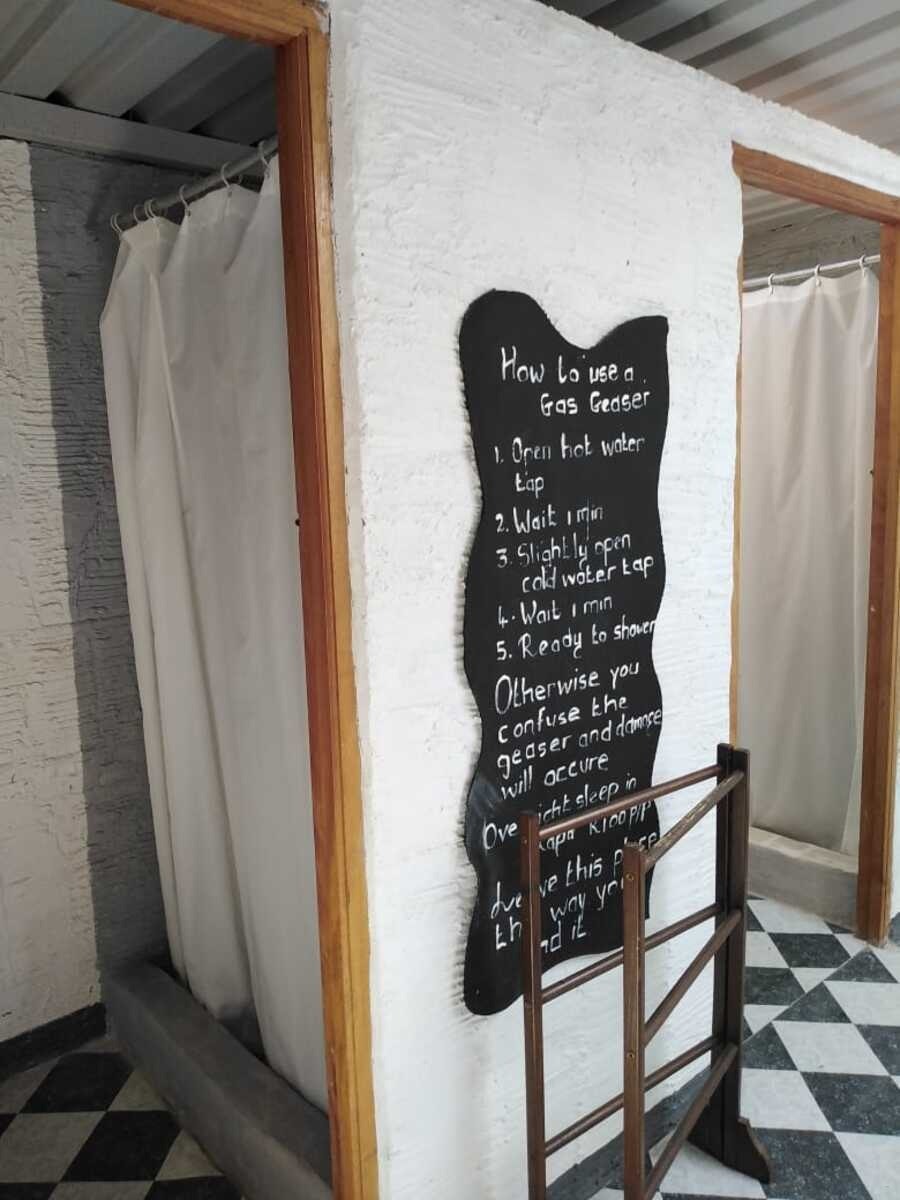 How to use a
Gas Geaser
1. Open hot water
tap
2. Wait 1 min
3. Slightly open
cold water tap
4. Wait 1 min
5. Ready to shower
Otherwise you
confuse the
geaser and damage
will accure
sleep in
R100 P/P
this
way you
it